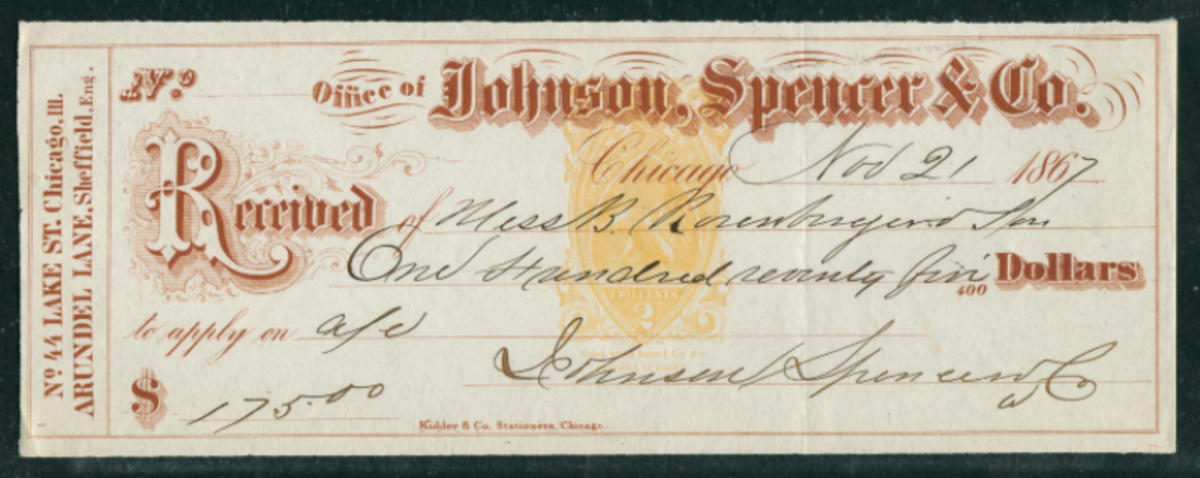 No. 44 LAKE ST. Chicago, Ill.
ARUNDEL LANE, Sheffield, Eng.
No.
Office of Johnson, Spencer & Co.
Chicago Nov 21 1867
Received of Mess B.
One Hundred seventy five Dollars
100
to apply on a/c
TWO CENTS
2
Johnson Spencer & Co
$ 175.00
Kidder & Co. Stationers, Chicago.